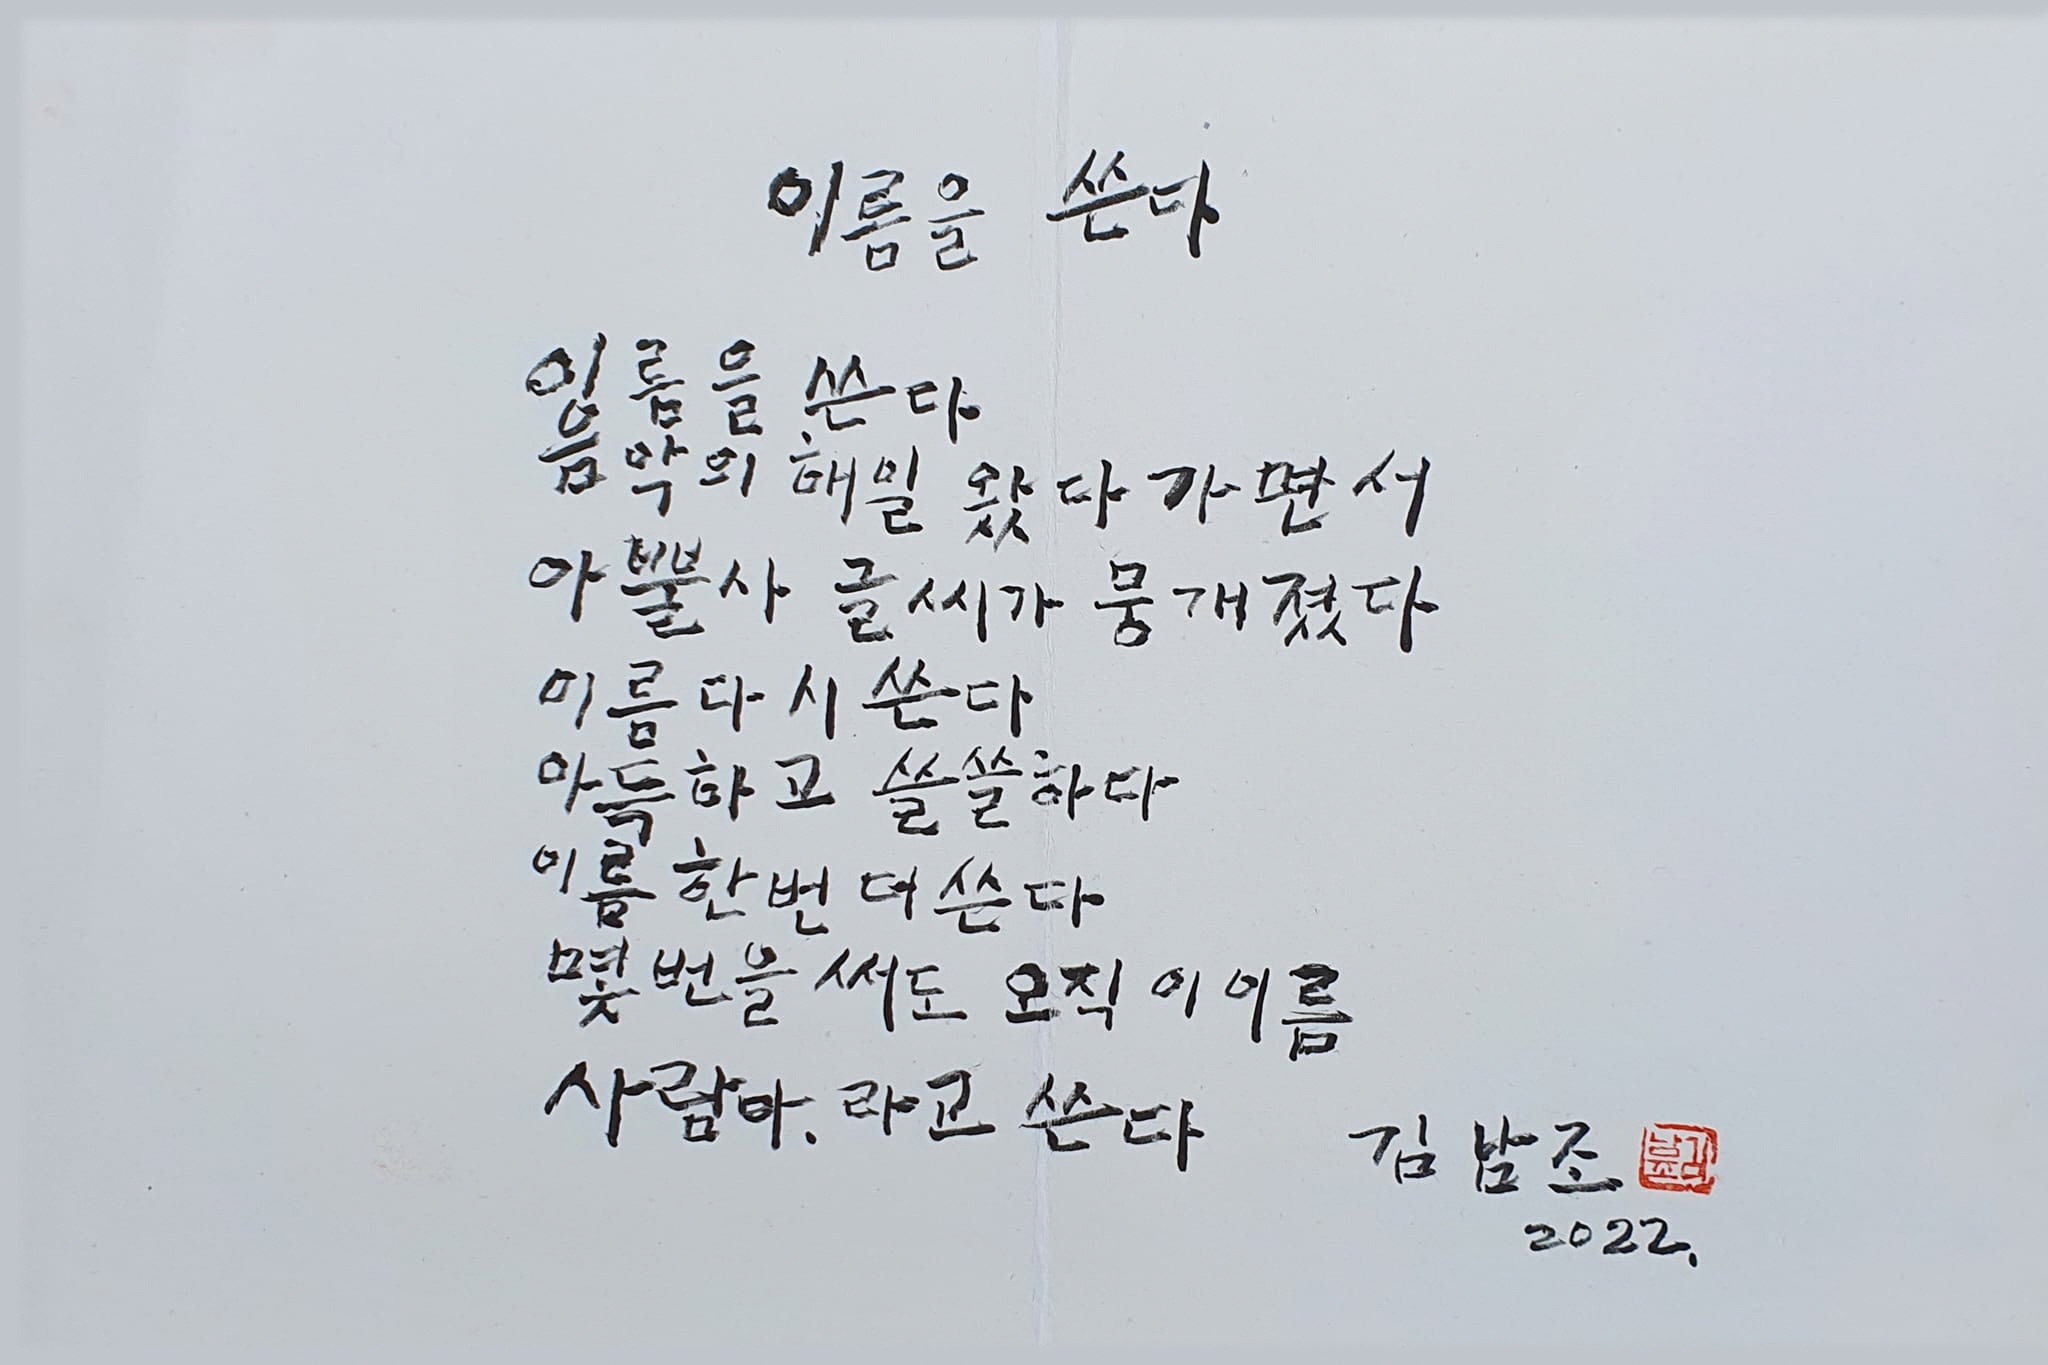 이름을 쓴다
이름을 쓴다
음악의 해일 왔다 가면서
아뿔사 글씨가 뭉개졌다
이름 다시 쓴다
아득하고 쓸쓸하다
이름 한번 더 쓴다
몇 번을 써도 오직 이 이름
사람아. 라고 쓴다
김남조
2022.